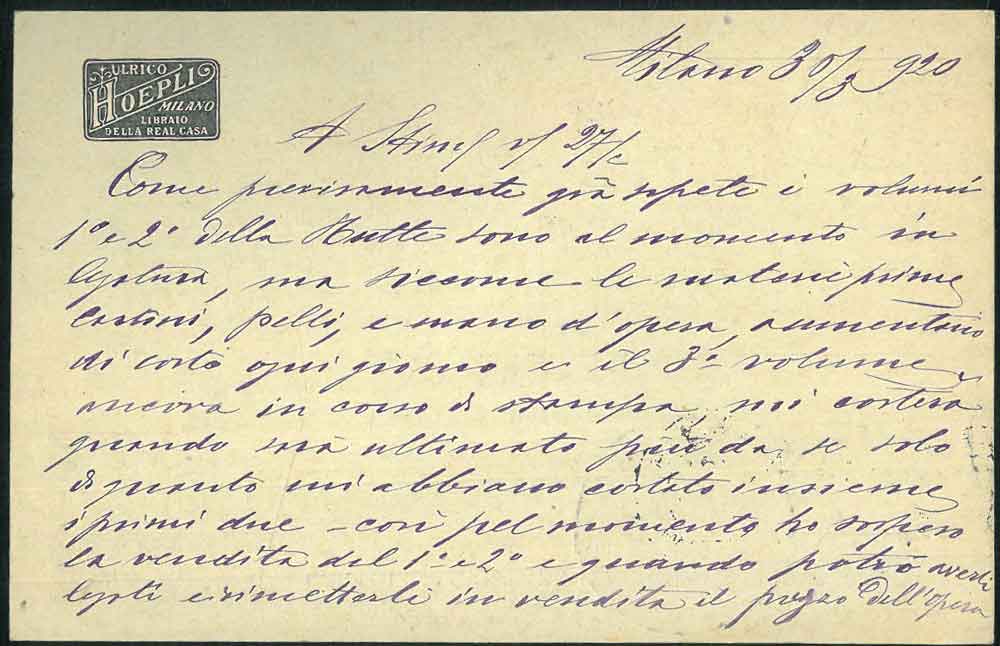 ULRICO
HOEPLI
MILANO
LIBRAIO
DELLA REAL CASA
Milano 30/3 920
A Stim/ 27/c
Come precisamente già sapete i volumi
1º e 2º della Hütte sono al momento in
legatura, ma siccome le materie prime
cartoni, pelli, e mano d'opera, aumentano
di costo ogni giorno e il 3º volume,
ancora in corso di stampa, mi costerà
quando sarà ultimato più da se solo
di quanto mi abbiano costato insieme
i primi due – così pel momento ho sospeso
la vendita del 1º e 2º e quando potrò averli
legati e rimetterli in vendita il prezzo dell'opera